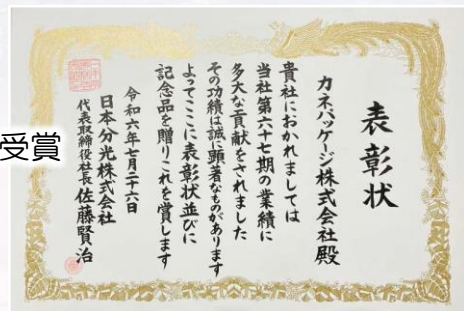 表彰状
カネパッケージ株式会社殿
貴社におかれましては
当社第六十七期の業績に
多大な貢献をされました
その功績は誠に顕著なものがあります
よってここに表彰状並びに
記念品を贈りこれを賞します
令和六年七月二十六日
日本分光株式会社
代表取締役社長 佐藤賢治
受賞